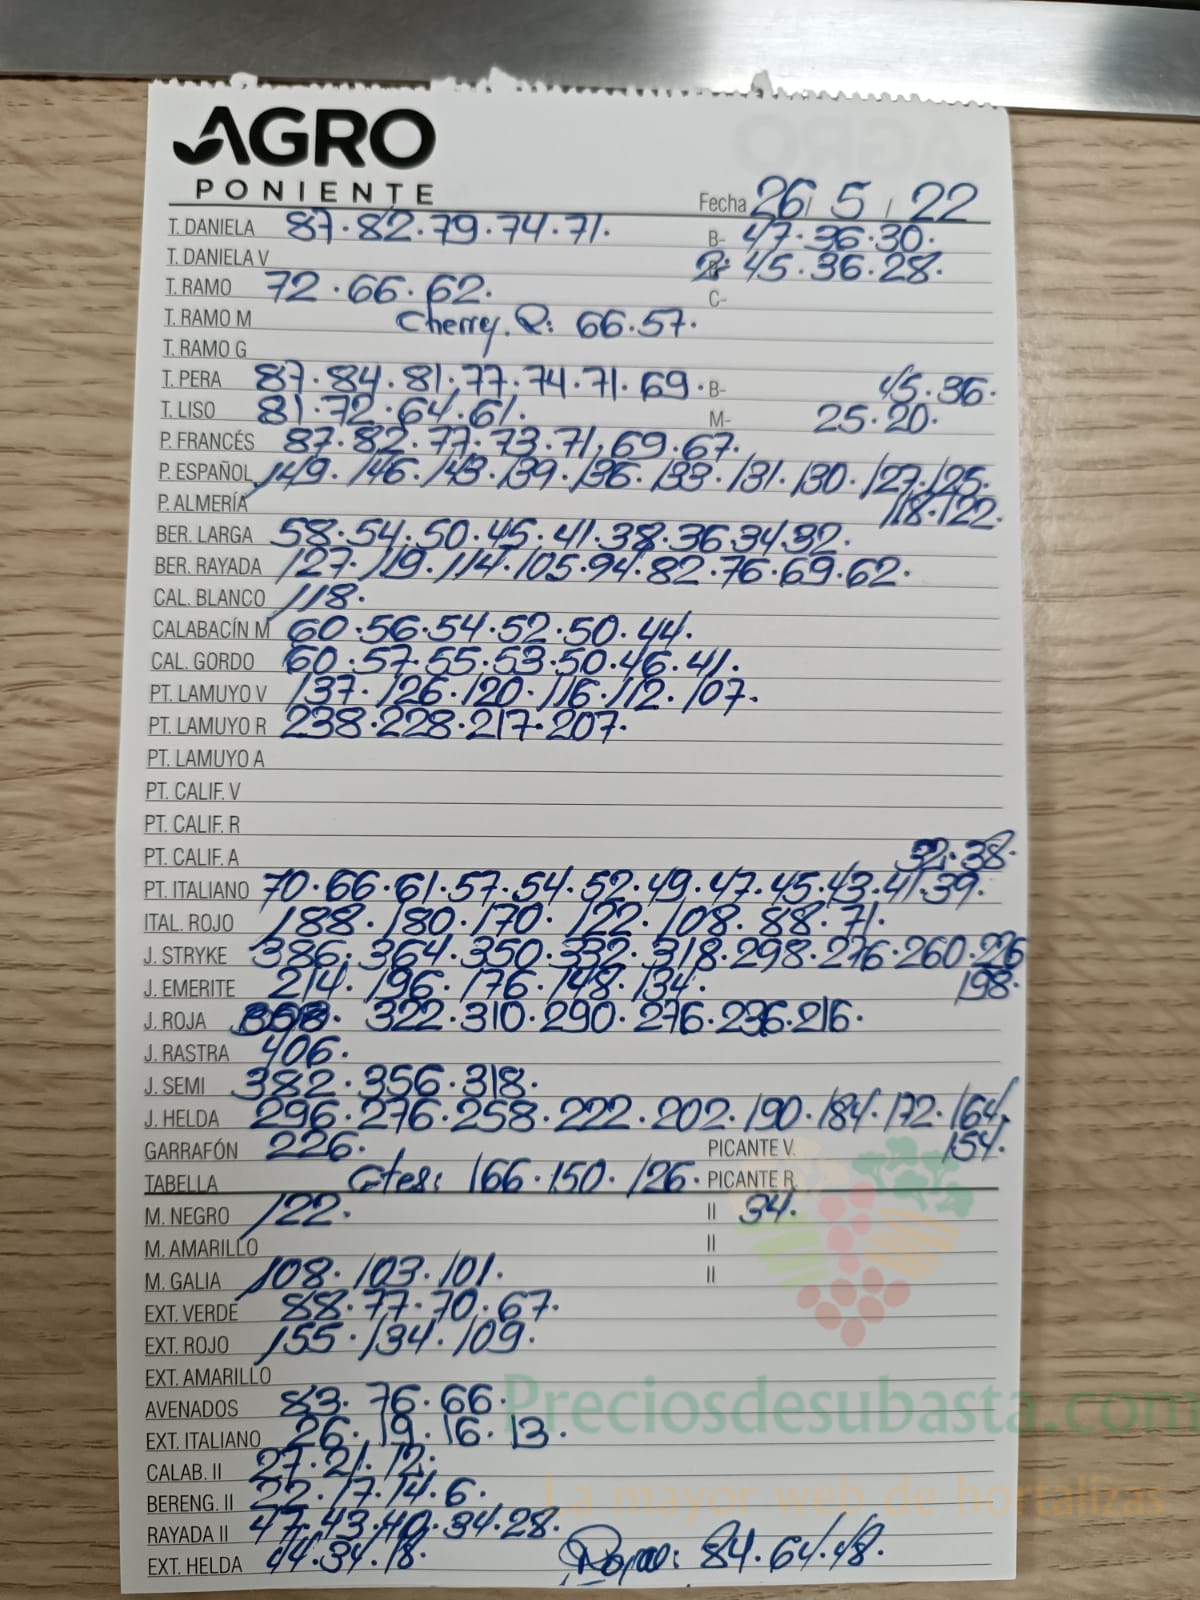 AGRO
PONIENTE
Fecha 26/ 5 / 22
T. DANIELA 87.82.79.74.71. B- 47.36.30.
T. DANIELA V 45.36.28.
T. RAMO 72.66.62. C-
T. RAMO M Cherry. R: 66.57.
T. RAMO G
T. PERA 87.84.81.77.74.71.69. B- 45.36.
T. LISO 81.72.64.61. M- 25.20.
P. FRANCÉS 87.82.77.73.71.69.67.
P. ESPAÑOL 149.146.143.139.136.133.131.130.127.125.
P. ALMERÍA 118.122.
BER. LARGA 58.54.50.45.41.38.36.34.32.
BER. RAYADA 127.119.114.105.94.82.76.69.62.
CAL. BLANCO 118.
CALABACÍN M 60.56.54.52.50.44.
CAL. GORDO 60.57.55.53.50.46.41.
PT. LAMUYO V 137.126.120.116.112.107.
PT. LAMUYO R 238.228.217.207.
PT. LAMUYO A
PT. CALIF. V
PT. CALIF. R
PT. CALIF. A 32.38.
PT. ITALIANO 70.66.61.57.54.52.49.47.45.43.41.39.
ITAL. ROJO 188.180.170.122.108.88.71.
J. STRYKE 386.364.350.332.318.298.276.260.226
J. EMERITE 214.196.176.148.134. 198.
J. ROJA 322.310.290.276.236.216.
J. RASTRA 406.
J. SEMI 382.356.318.
J. HELDA 296.276.258.222.202.190.184.172.164.
GARRAFÓN 226. PICANTE V. 154.
TABELLA 166.150.126. PICANTE R.
M. NEGRO 122. II 34.
M. AMARILLO II
M. GALIA 108.103.101. II
EXT. VERDE 88.77.70.67.
EXT. ROJO 155.134.109.
EXT. AMARILLO
AVENADOS 83.76.66.
Preciosdesubasta.com
EXT. ITALIANO 26.19.16.13.
CALAB. II 27.21.12.
BERENG. II 22.17.14.6.
La mayor web de hortalizas
RAYADA II 47.43.40.34.28.
EXT. HELDA 44.34.18. 84.64.48.